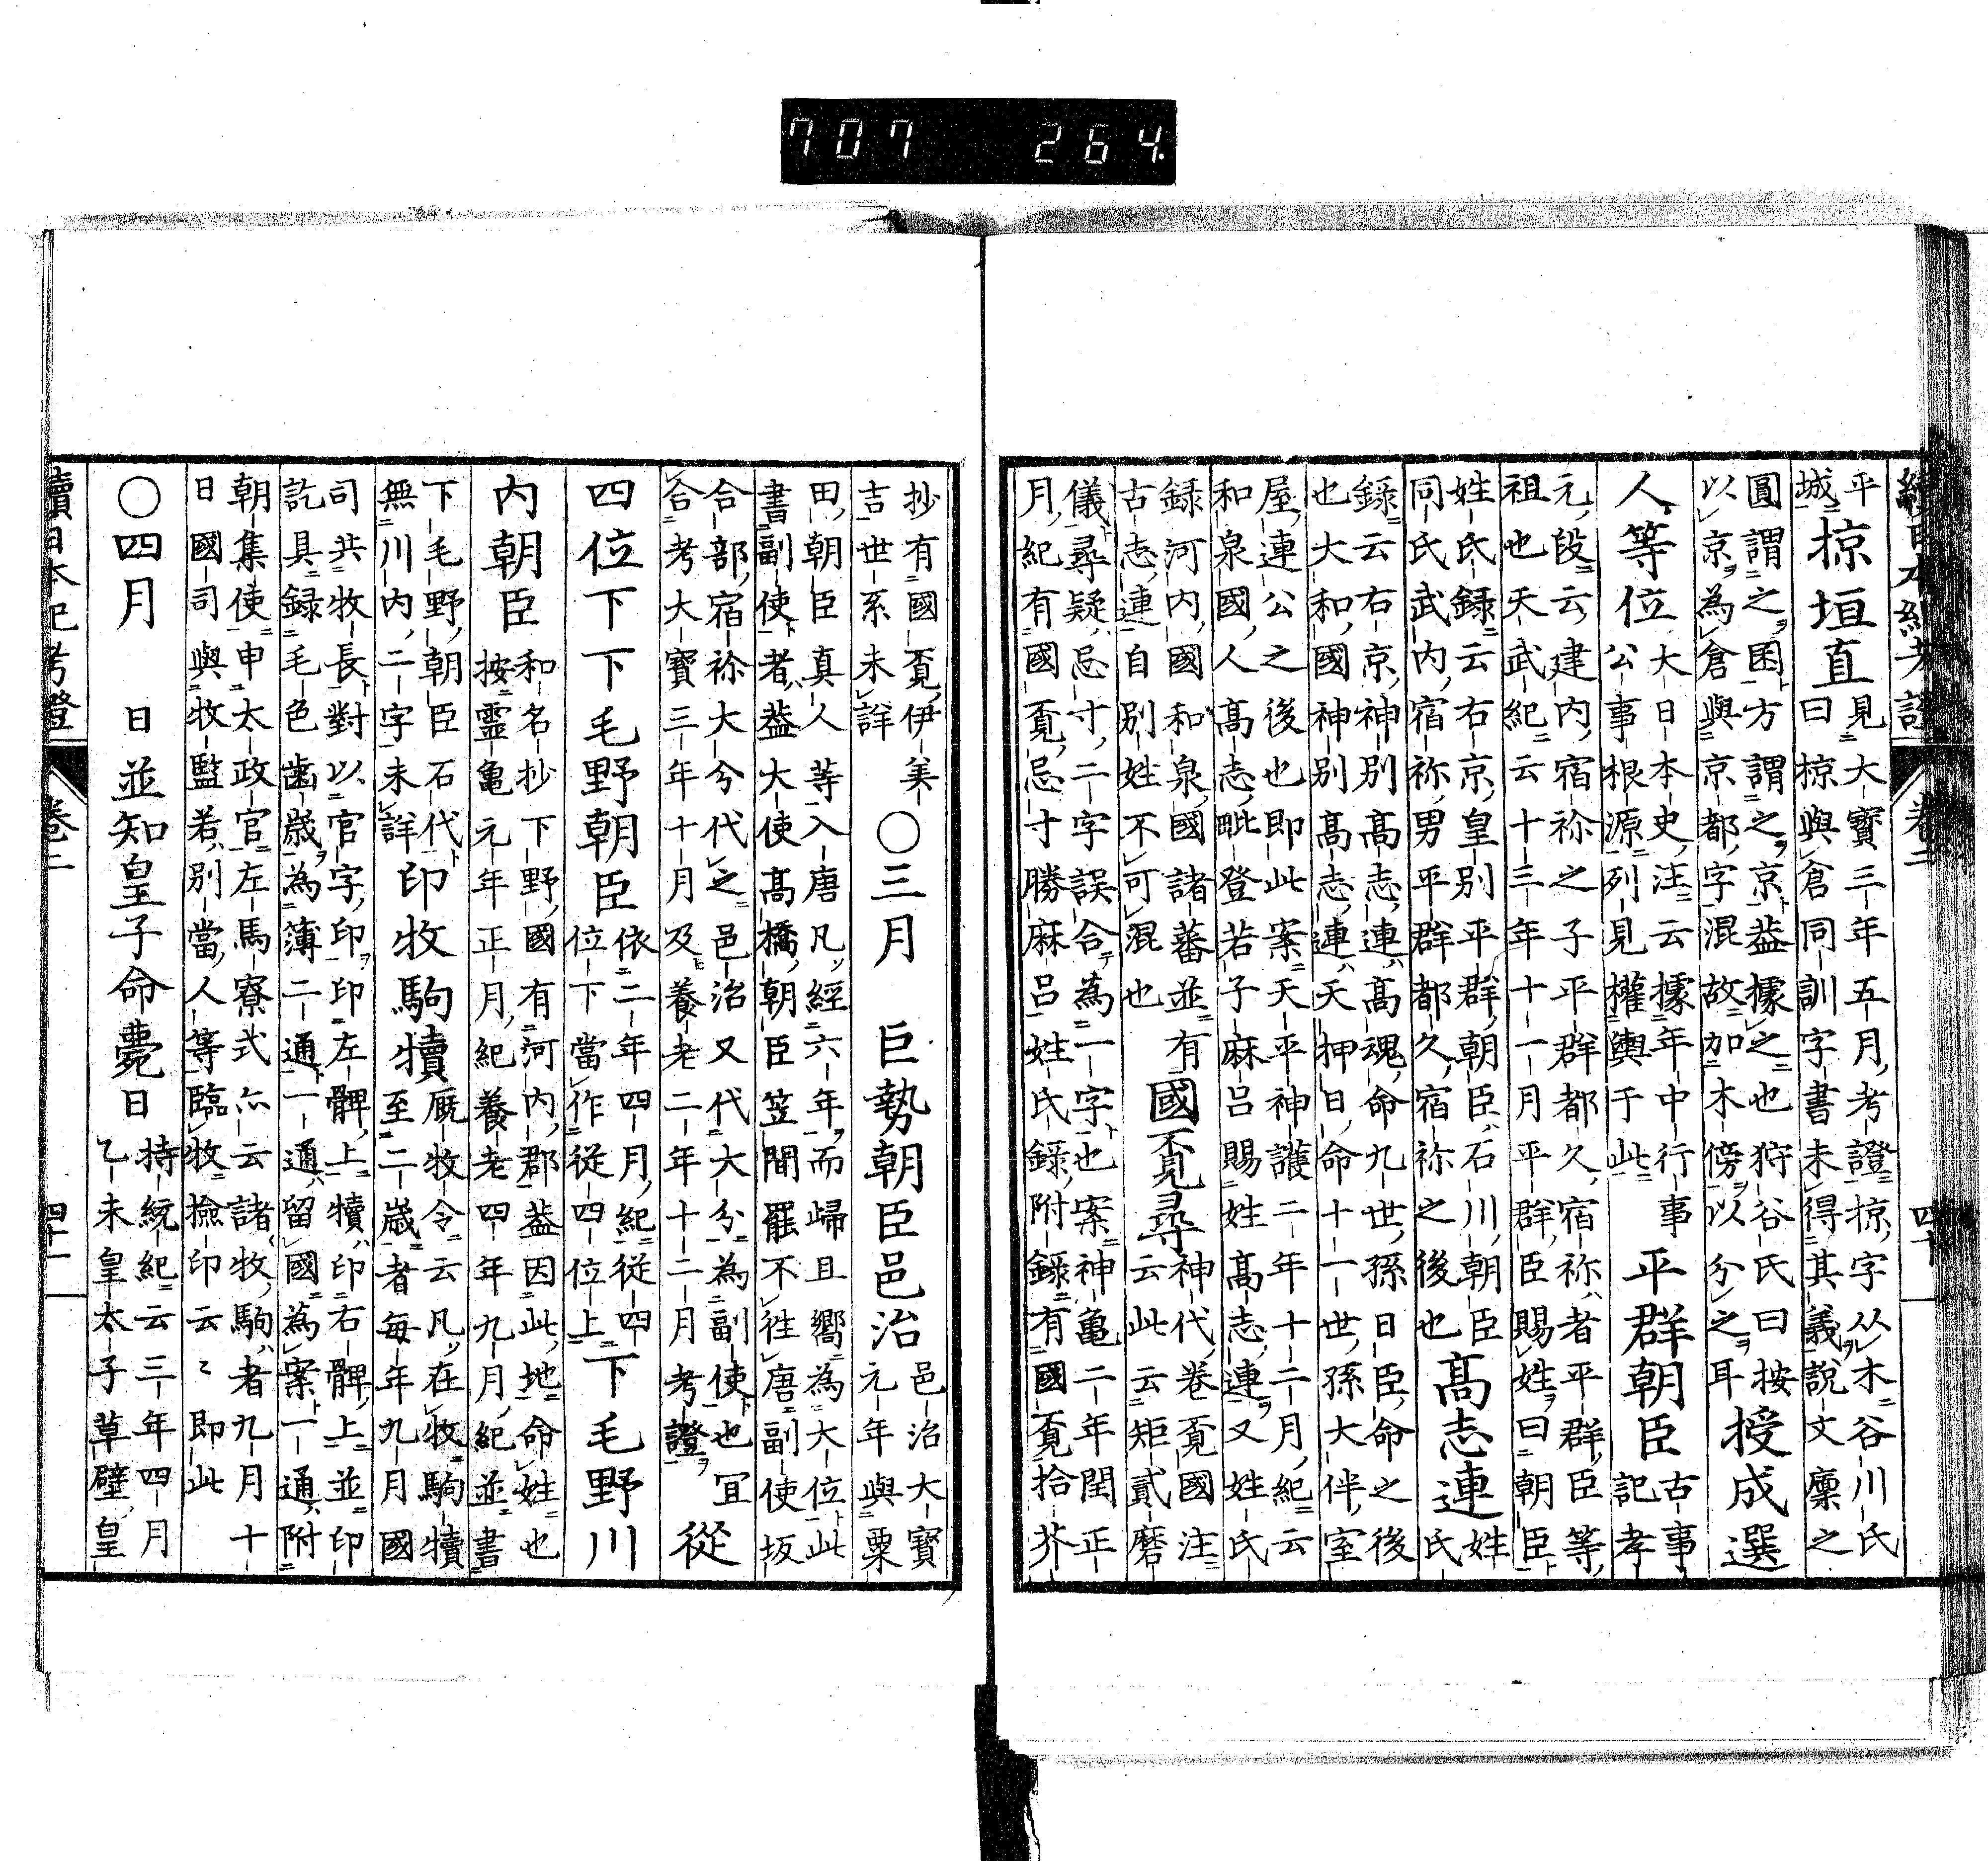 707 264.
續日本紀考證 卷二 四十
平城
掠垣直
見大寶三年五月考證掠字从木谷川氏
曰掠與倉同訓字書未得其義説文廩之
圓謂之囷方謂之京蓋據之也狩谷氏曰按
以京為倉與京都字混故加木傍以分之耳
授成選
人等位
大日本史注云據年中行事
公事根源列見權輿于此
平群朝臣
古事
記孝
元段云建内宿祢之子平群都久宿祢者平群臣等
祖也天武紀云十三年十一月平群臣賜姓曰朝臣
姓氏録云右京皇別平群朝臣石川朝臣
同氏武内宿祢男平群都久宿祢之後也
高志連
姓
氏
録云右京神別高志連高魂命九世孫日臣命之後
也大和國神別高志連天押日命十一世孫大伴室
屋連公之後也即此案天平神護二年十二月紀云
和泉國人高志毗登若子麻呂賜姓高志連又姓氏
録河内國和泉國諸蕃並有
古志連自別姓不可混也
國覔尋
神代卷覔國注
云此云矩貳磨
儀尋疑忌寸二字誤合為一字也案神亀二年閏正
月紀有國覔忌寸勝麻呂姓氏録附録有國覔拾芥
抄有國覔伊美
吉世系未詳
○三月
巨勢朝臣邑治
邑治大寶
元年與粟
田朝臣真人等入唐凡經六年而歸且嚮為大位此
書副使者蓋大使高橋朝臣笠間罷不徃唐副使坂
合部宿祢大分代之邑治又代大分為副使也宜
合考大寶三年十月及養老二年十二月考證
從
四位下下毛野朝臣
依二年四月紀從四
位下當作從四位上
下毛野川
内朝臣
和名抄下野國有河内郡蓋因此地命姓也
按霊亀元年正月紀養老四年九月紀並書
下毛野朝臣石代
無川内二字未詳
印牧駒犢
厩牧令云凡在牧駒犢
至二歳者毎年九月國
司共牧長對以官字印印左髀上犢印右髀上並印
訖具録毛色歯歳為簿二通一通留國為案一通附
朝集使申太政官左馬寮式亦云諸牧駒者九月十
日國司與牧監若別當人等臨牧撿印云〻即此
○四月
日並知皇子命薨日
持統紀云三年四月
乙未皇太子草壁皇
續日本紀考證 卷二 四十一